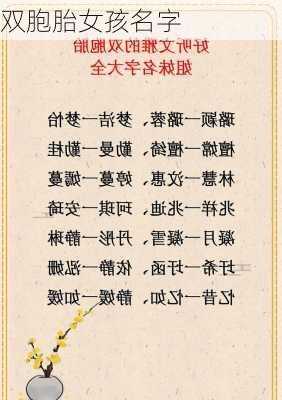 双胞胎女孩名字
好听文雅的双胞胎
姐妹名字大全
璐颖一璐蓉、梦洁一梦怡
檀嫦一檀绮、勤曼一勤桂
林慧一汶惠、婷蔓一嫣蔓
兆祥一兆迪、珂琪一安琦
凝月一凝雪、丹彤一静琳
圩希一圩函、依静一泓姗
忆昔一忆如、静媛一如媛